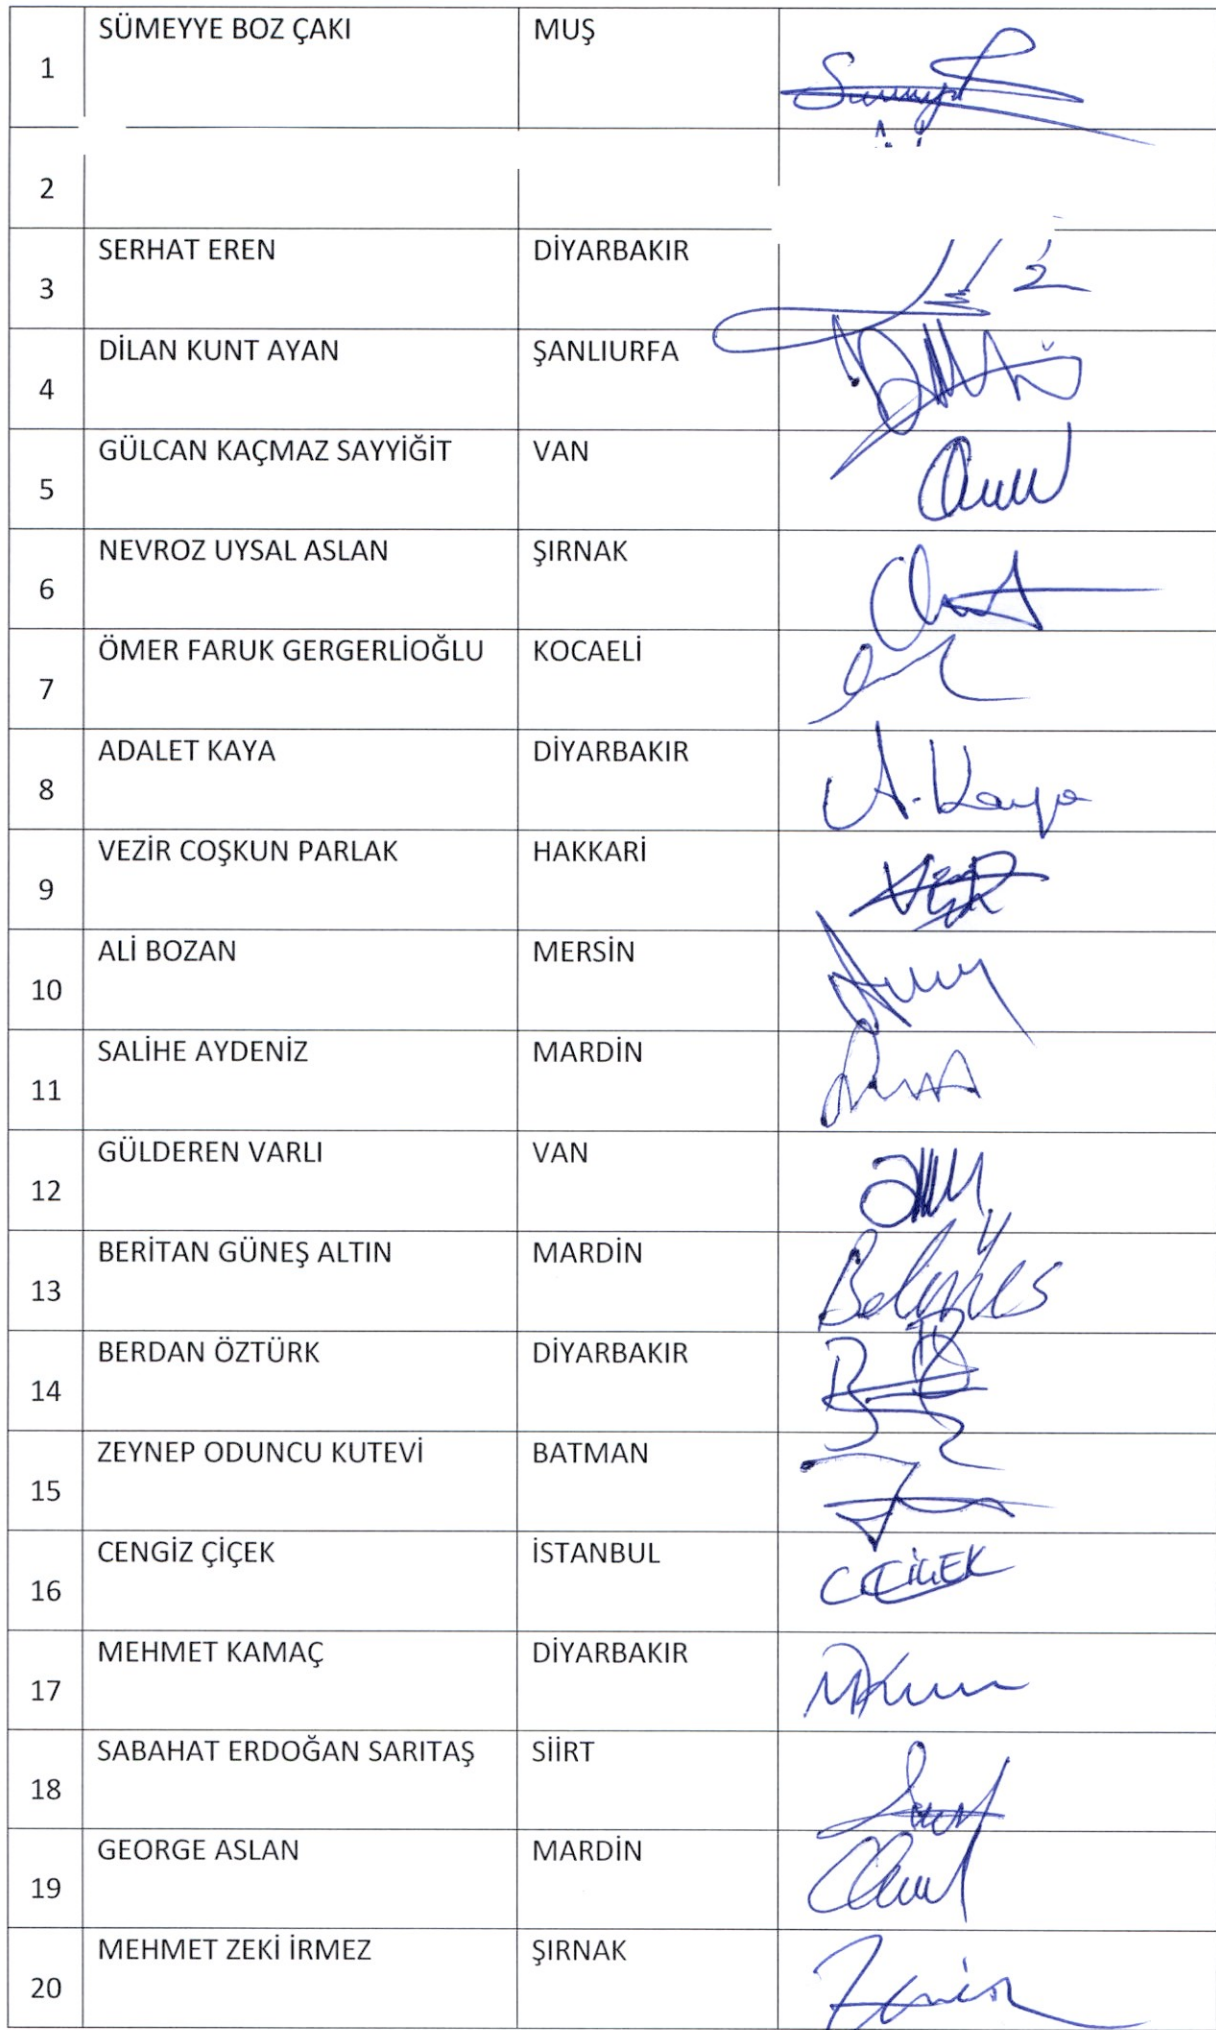 SÜMEYYE BOZ ÇAKI MUŞ
1
2
SERHAT EREN DİYARBAKIR
3
DİLAN KUNT AYAN ŞANLIURFA
4
GÜLCAN KAÇMAZ SAYYİĞİT VAN
5
NEVROZ UYSAL ASLAN ŞIRNAK
6
ÖMER FARUK GERGERLİOĞLU KOCAELİ
7
ADALET KAYA DİYARBAKIR
8 A. Kaya
VEZİR COŞKUN PARLAK HAKKARİ
9
ALİ BOZAN MERSİN
10
SALİHE AYDENİZ MARDİN
11
GÜLDEREN VARLI VAN
12
BERİTAN GÜNEŞ ALTIN MARDİN
13
BERDAN ÖZTÜRK DİYARBAKIR
14
ZEYNEP ODUNCU KUTEVİ BATMAN
15
CENGİZ ÇİÇEK İSTANBUL
16 C ÇİÇEK
MEHMET KAMAÇ DİYARBAKIR
17
SABAHAT ERDOĞAN SARITAŞ SİİRT
18
GEORGE ASLAN MARDİN
19
MEHMET ZEKİ İRMEZ ŞIRNAK
20